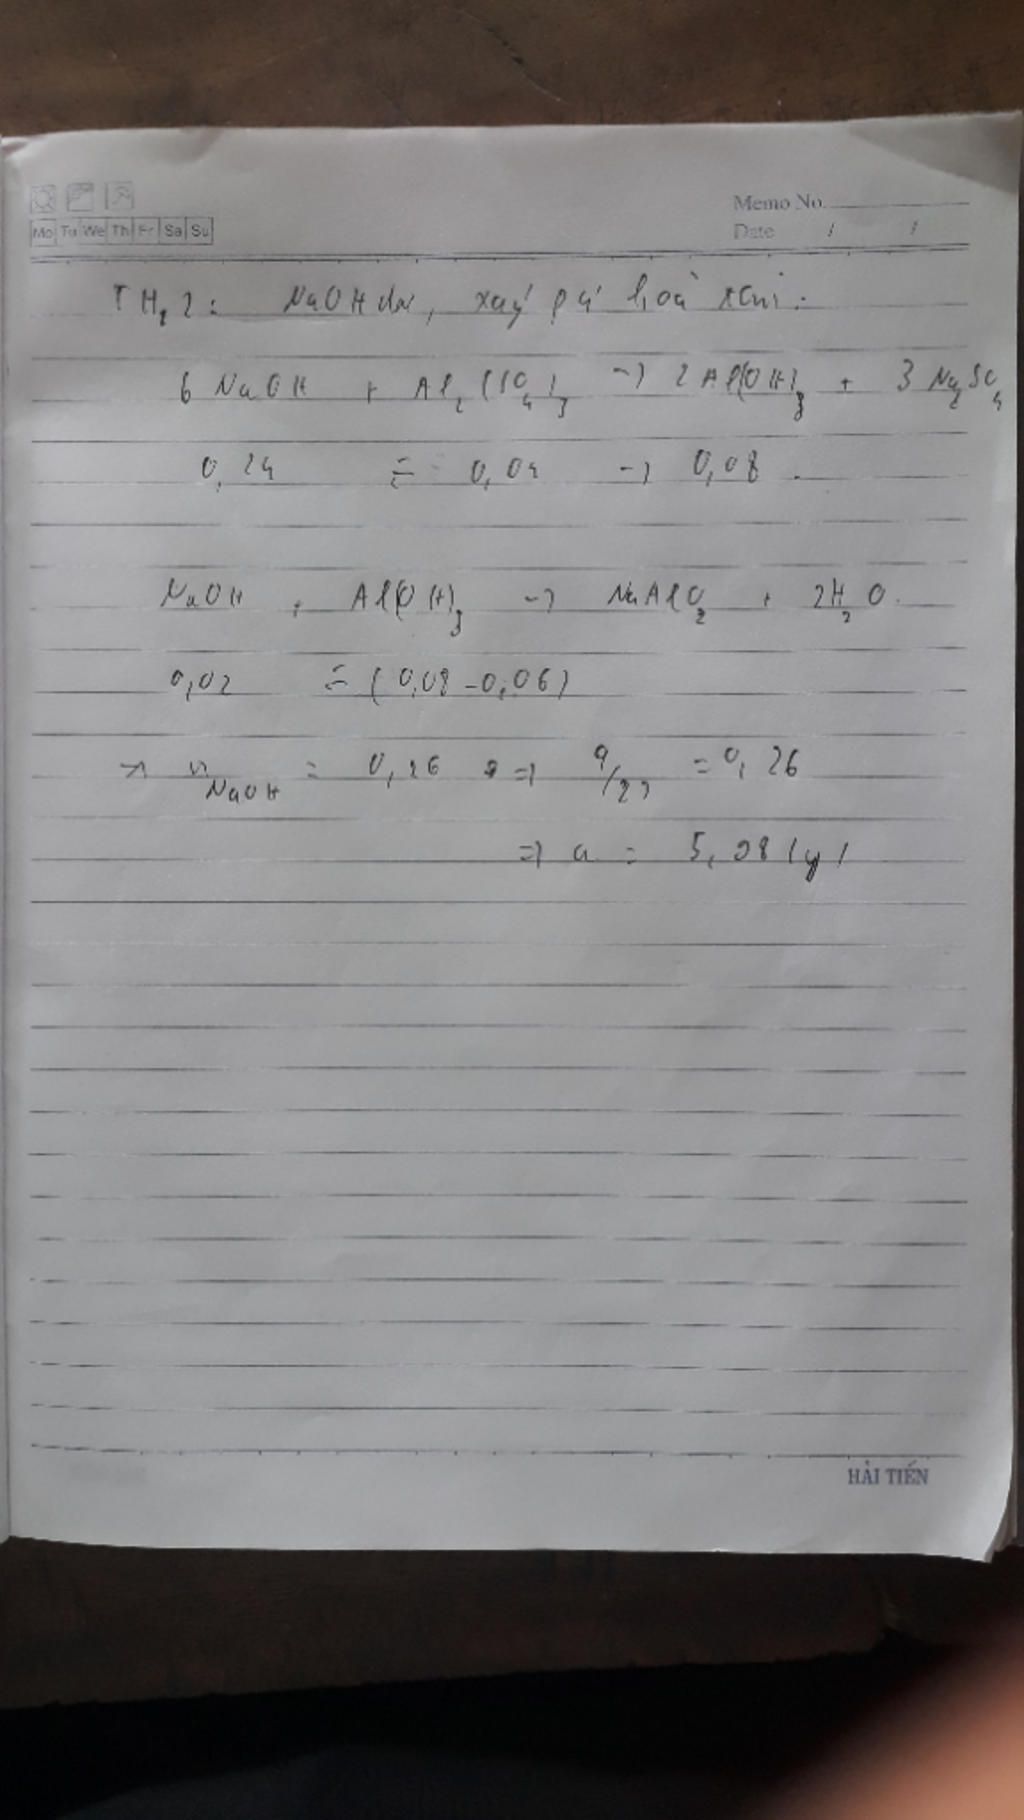 Memo No.
Mo Tu We Th Fr Sa Su
Date / /
TH2: NaOH dư, xảy pứ hoà tan:
6 NaOH + Al2(SO4)3 → 2 Al(OH)3 + 3 Na2SO4
0,24 ← 0,04 → 0,08
NaOH + Al(OH)3 → NaAlO2 + 2H2O
0,02 ← (0,08 - 0,06)
→ nNaOH = 0,26 ⇒ a/23 = 0,26
⇒ a = 5,98 (g)
HẢI TIẾN